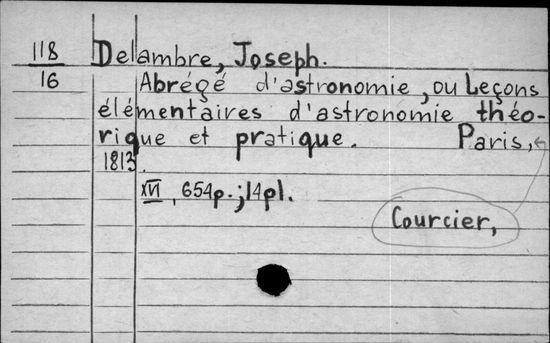 118 Delambre, Joseph.
16 Abrégé d'astronomie, ou Leçons
élémentaires d'astronomie théo-
rique et pratique. Paris,
1813.
XVI, 654p.; 14pl.
Courcier,